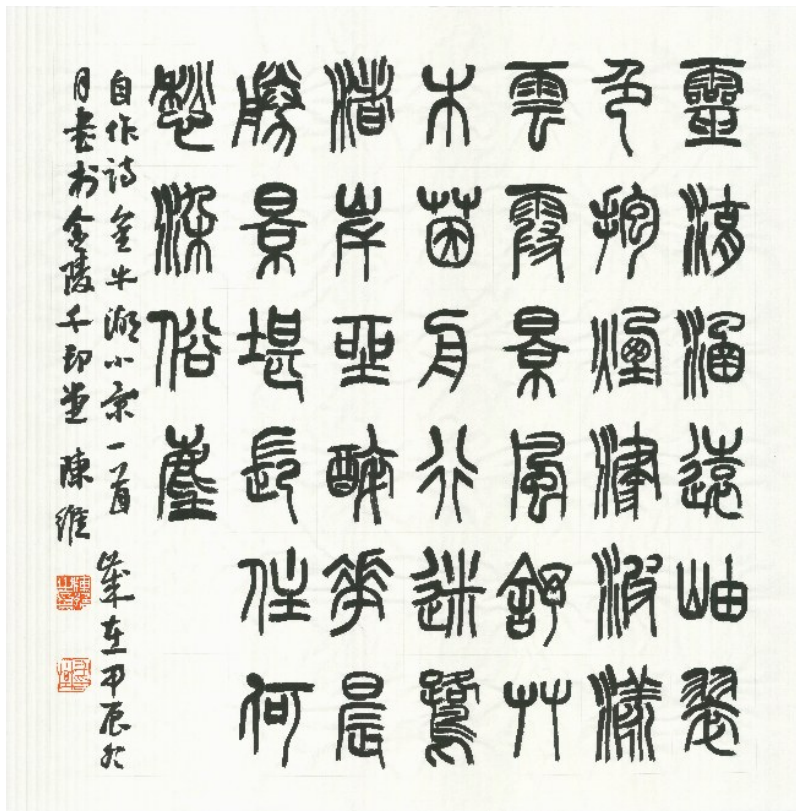 靈漪涵遠岫翠
色抱煙津波漾
雲霞景風舒艸
木茵舟行迷鷺
渚岸坐醉花晨
勝景堪長住何
愁染俗塵
自作詩金牛湖小景一首 歲在甲辰冬
月書於金陵千印堂 陳維